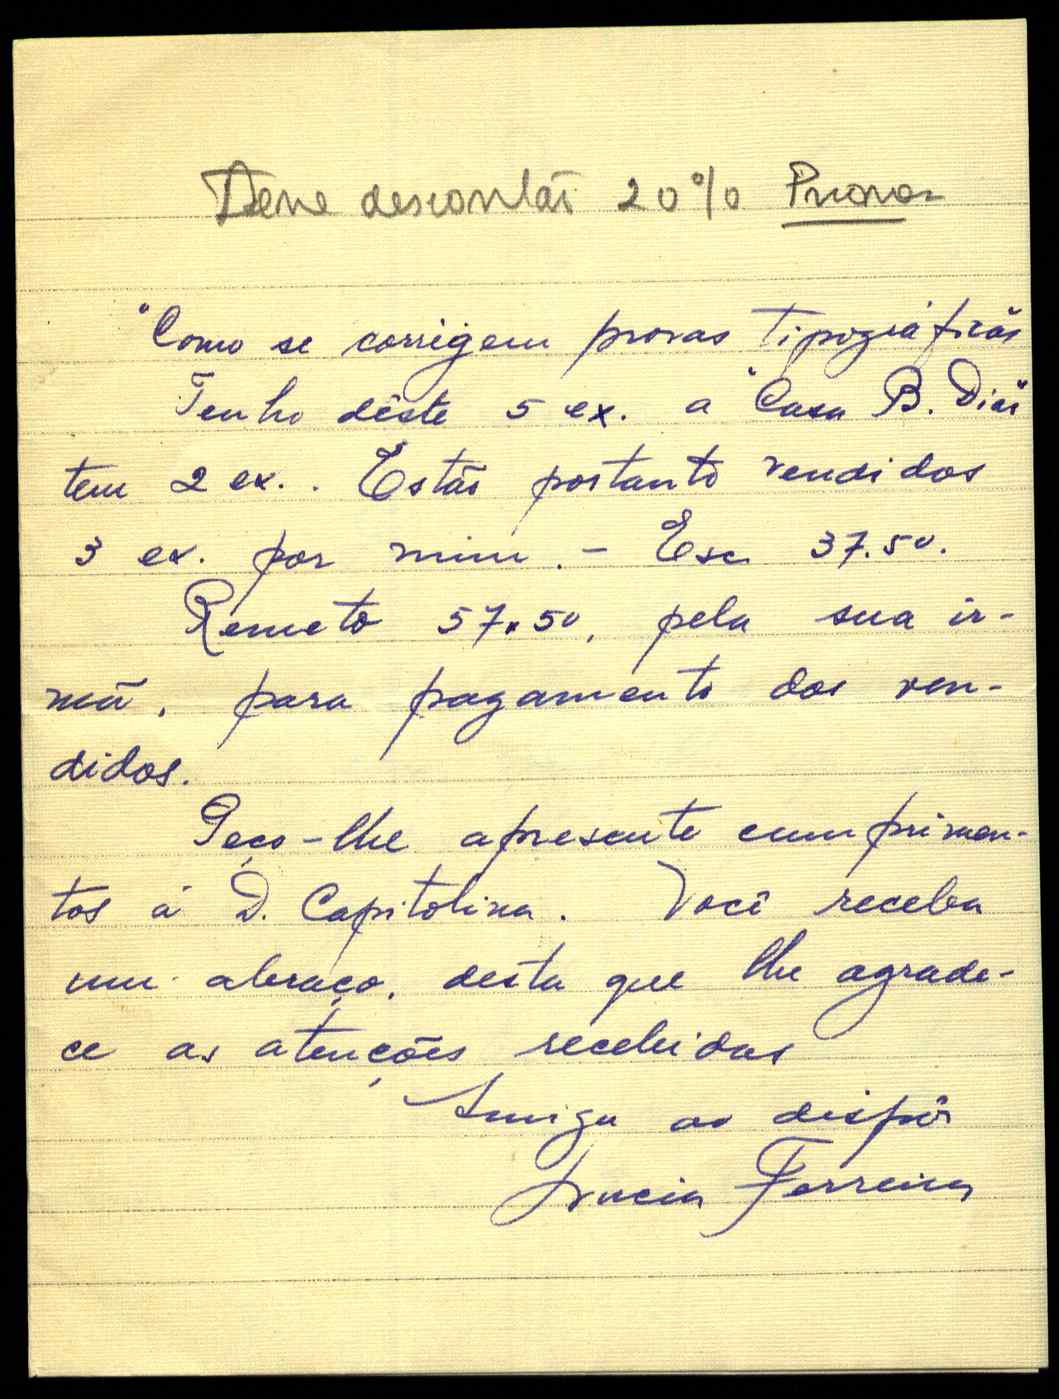 Deve descontar 20% Provas
"Como se corrigem provas tipográficas"
Tenho dêste 5 ex. a "Casa B. Dias"
tem 2 ex.. Estão portanto vendidos
3 ex. por mim. - Esc. 37.50.
Remeto 57.50, pela sua ir-
mã, para pagamento dos ven-
didos.
Peço-lhe apresente cumprimen-
tos à D. Capitolina. Você receba
um abraço, desta que lhe agrade-
ce as atenções recebidas
Amiga ao dispôr
Ferreira